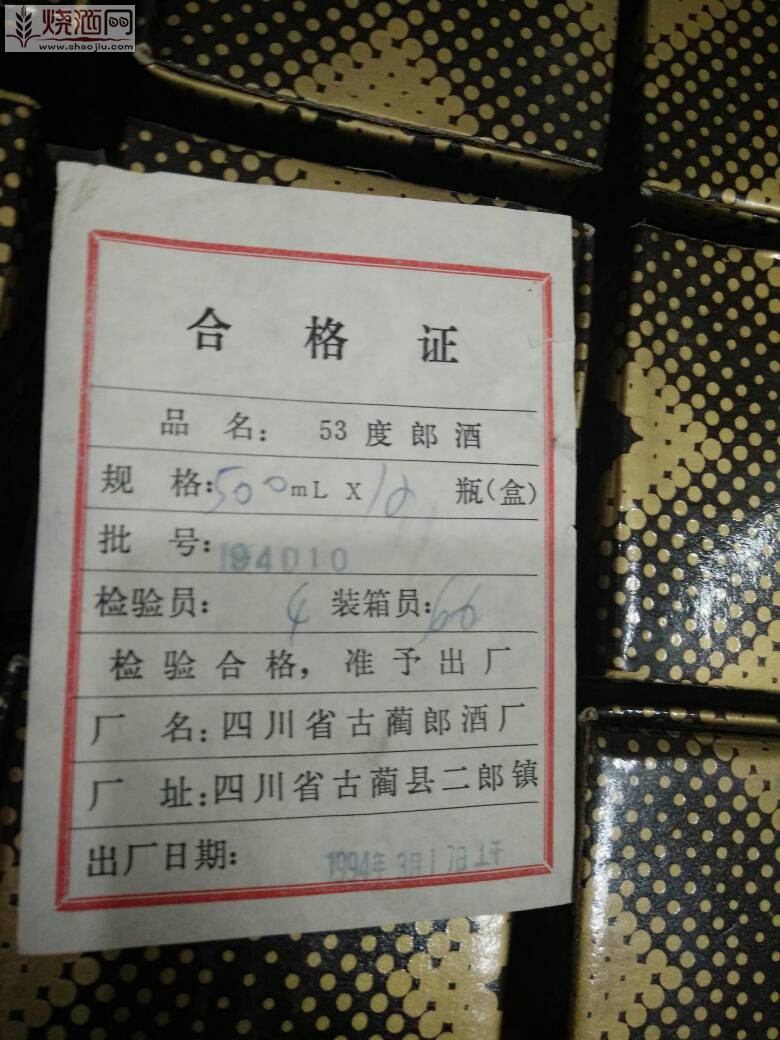 烧酒网
www.shaojiu.com
合格证
品名: 53度郎酒
规格:500mL X 12 瓶(盒)
批号: 94010
检验员: 4 装箱员: 66
检验合格,准予出厂
厂名:四川省古蔺郎酒厂
厂址:四川省古蔺县二郎镇
出厂日期: 1994年3月17日上午